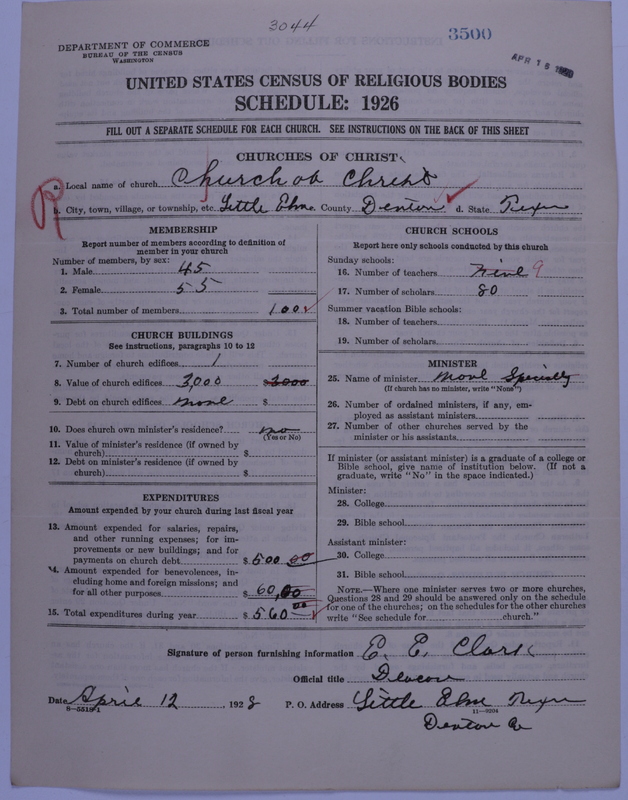 3044
3500
DEPARTMENT OF COMMERCE
BUREAU OF THE CENSUS
WASHINGTON
APR 16
UNITED STATES CENSUS OF RELIGIOUS BODIES
SCHEDULE: 1926
FILL OUT A SEPARATE SCHEDULE FOR EACH CHURCH. SEE INSTRUCTIONS ON THE BACK OF THIS SHEET
CHURCHES OF CHRIST
a. Local name of church Church of Christ
b. City, town, village, or township, etc. Little Elm c. County Denton d. State Texas
MEMBERSHIP
Report number of members according to definition of
member in your church
Number of members, by sex:
1. Male 45
2. Female 55
3. Total number of members 100
CHURCH BUILDINGS
See instructions, paragraphs 10 to 12
7. Number of church edifices 1
8. Value of church edifices 3,000 $ 3000
9. Debt on church edifices none $
10. Does church own minister's residence? no
(Yes or No)
11. Value of minister's residence (if owned by
church) $
12. Debt on minister's residence (if owned by
church) $
EXPENDITURES
Amount expended by your church during last fiscal year
13. Amount expended for salaries, repairs,
and other running expenses; for im-
provements or new buildings; and for
payments on church debt $ 500.00
14. Amount expended for benevolences, in-
cluding home and foreign missions; and
for all other purposes $ 60.00
15. Total expenditures during year $ 560.00
CHURCH SCHOOLS
Report here only schools conducted by this church
Sunday schools:
16. Number of teachers nine 9
17. Number of scholars 80
Summer vacation Bible schools:
18. Number of teachers
19. Number of scholars
MINISTER
25. Name of minister None Specially
(If church has no minister, write "None")
26. Number of ordained ministers, if any, em-
ployed as assistant ministers
27. Number of other churches served by the
minister or his assistants
If minister (or assistant minister) is a graduate of a college or
Bible school, give name of institution below. (If not a
graduate, write "No" in the space indicated.)
Minister:
28. College
29. Bible school
Assistant minister:
30. College
31. Bible school
NOTE.—Where one minister serves two or more churches,
Questions 28 and 29 should be answered only on the schedule
for one of the churches; on the schedules for the other churches
write "See schedule for church."
Signature of person furnishing information E. E. Clark
Official title Deacon
Date April 12, 1928 P. O. Address Little Elm Texas
8—5518-1
11—9204
Denton Co